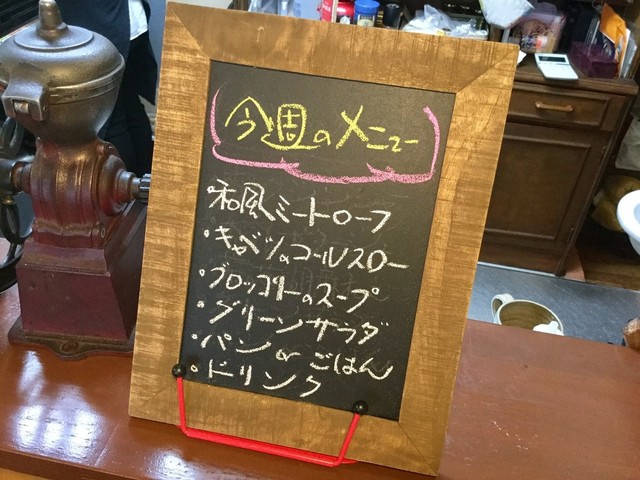 今週のメニュー
・和風ミートローフ
・キャベツのコールスロー
・ブロッコリーのスープ
・グリーンサラダ
・パン or ごはん
・ドリンク